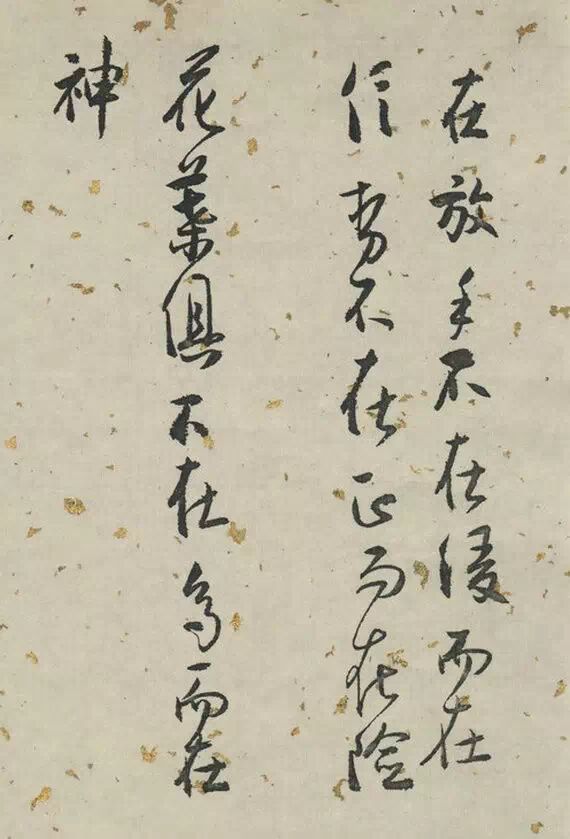 在放手不在缓而在
信势不在正而在险
花叶俱不在多而在
神